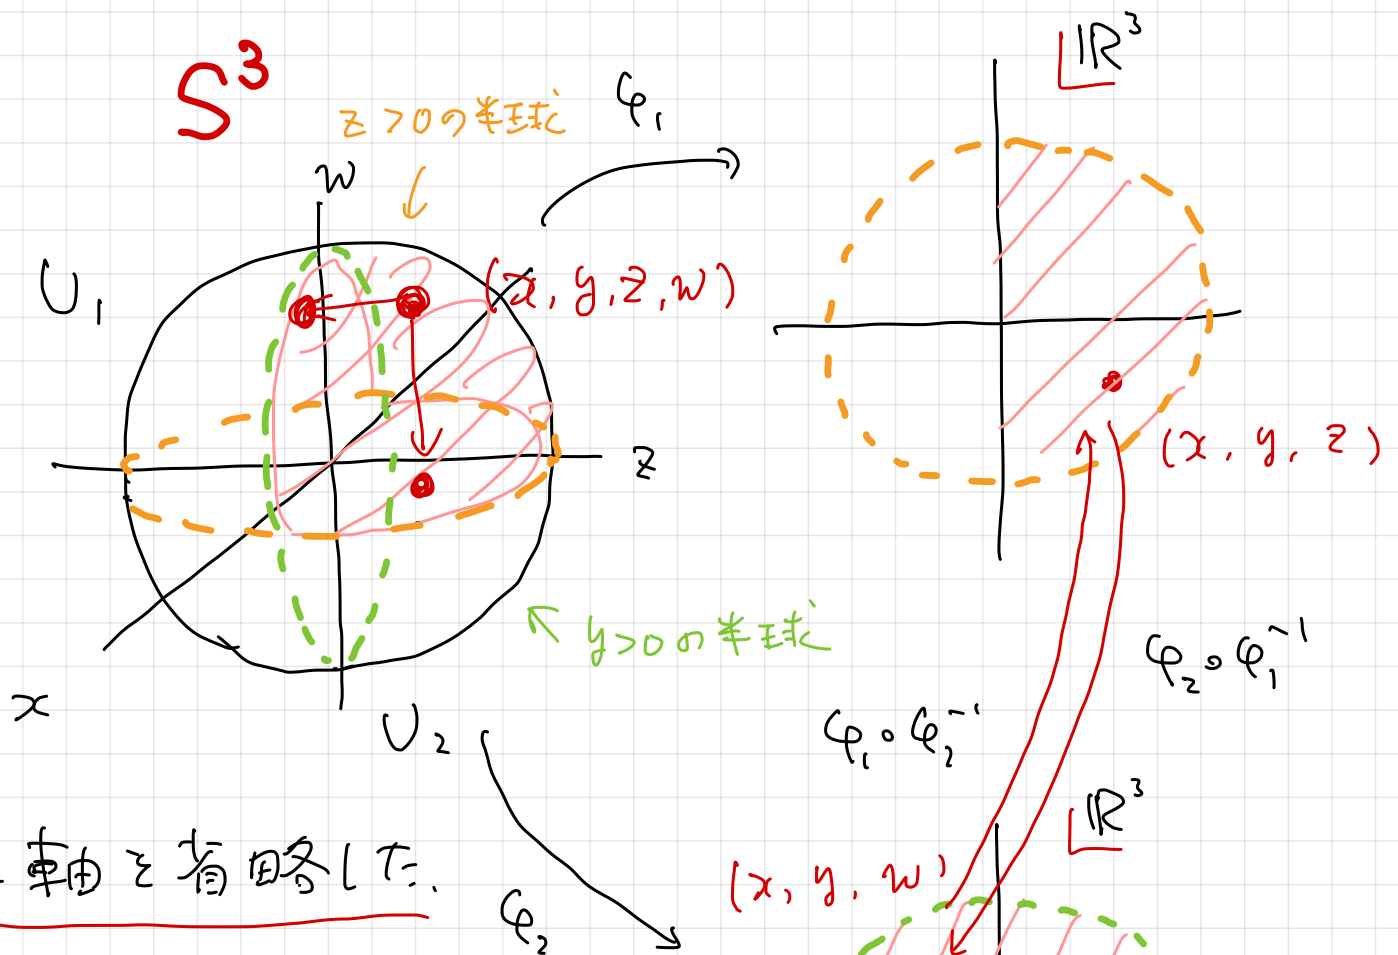 S³
z>0の半球
φ₁
ℝ³
w
U₁
(x, y, z, w)
z
(x, y, z)
y>0の半球
φ₂∘φ₁⁻¹
x
U₂
φ₁∘φ₂⁻¹
ℝ³
軸を省略した.
(x, y, w)
φ₂